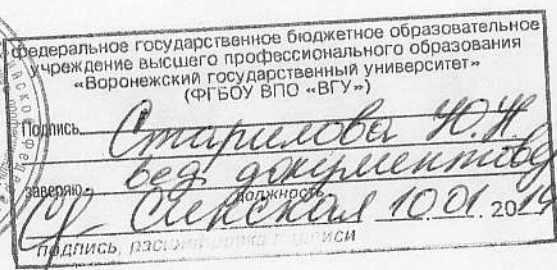 федеральное государственное бюджетное образовательное
учреждение высшего профессионального образования
«Воронежский государственный университет»
(ФГБОУ ВПО «ВГУ»)
Подпись Старилова Ю.Н.
вед документовед
заверяю должность
Сенская 10.01.2014
подпись, расшифровка подписи